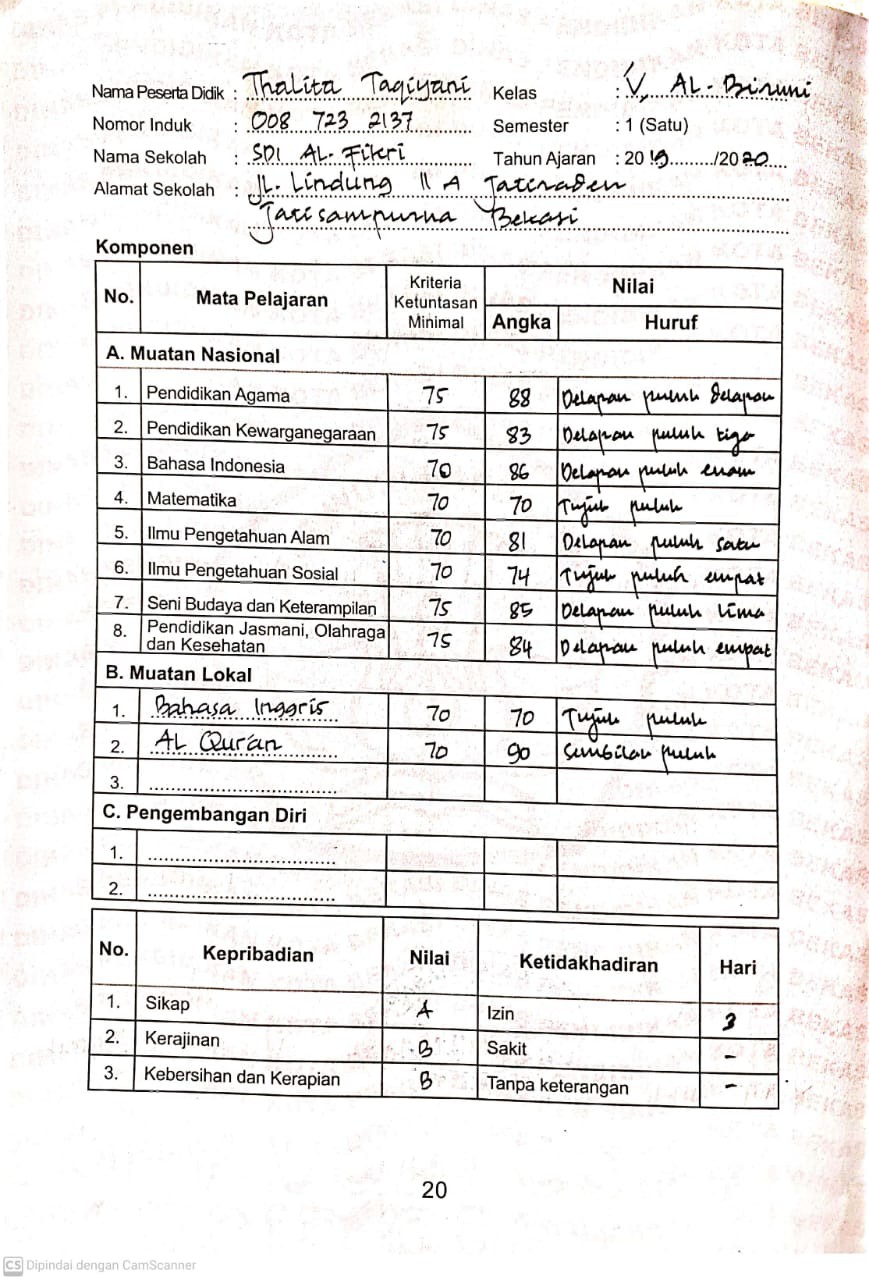 Nama Peserta Didik : Thalita Taqiyani Kelas : V, AL-Biruni
Nomor Induk : 008 723 2137 Semester : 1 (Satu)
Nama Sekolah : SDI AL-Fikri Tahun Ajaran : 2019/2020
Alamat Sekolah : JL. Lindung II A Jatiraden
Jatisampurna Bekasi
Komponen
No. Mata Pelajaran Kriteria Ketuntasan Minimal Nilai
Angka Huruf
A. Muatan Nasional
1. Pendidikan Agama 75 88 Delapan puluh delapan
2. Pendidikan Kewarganegaraan 75 83 Delapan puluh tiga
3. Bahasa Indonesia 70 86 Delapan puluh enam
4. Matematika 70 70 Tujuh puluh
5. Ilmu Pengetahuan Alam 70 81 Delapan puluh satu
6. Ilmu Pengetahuan Sosial 70 74 Tujuh puluh empat
7. Seni Budaya dan Keterampilan 75 85 Delapan puluh lima
8. Pendidikan Jasmani, Olahraga dan Kesehatan 75 84 Delapan puluh empat
B. Muatan Lokal
1. Bahasa Inggris 70 70 Tujuh puluh
2. AL Qur'an 70 90 Sembilan puluh
3.
C. Pengembangan Diri
1.
2.
No. Kepribadian Nilai Ketidakhadiran Hari
1. Sikap A Izin 3
2. Kerajinan B Sakit -
3. Kebersihan dan Kerapian B Tanpa keterangan -
20
CS Dipindai dengan CamScanner